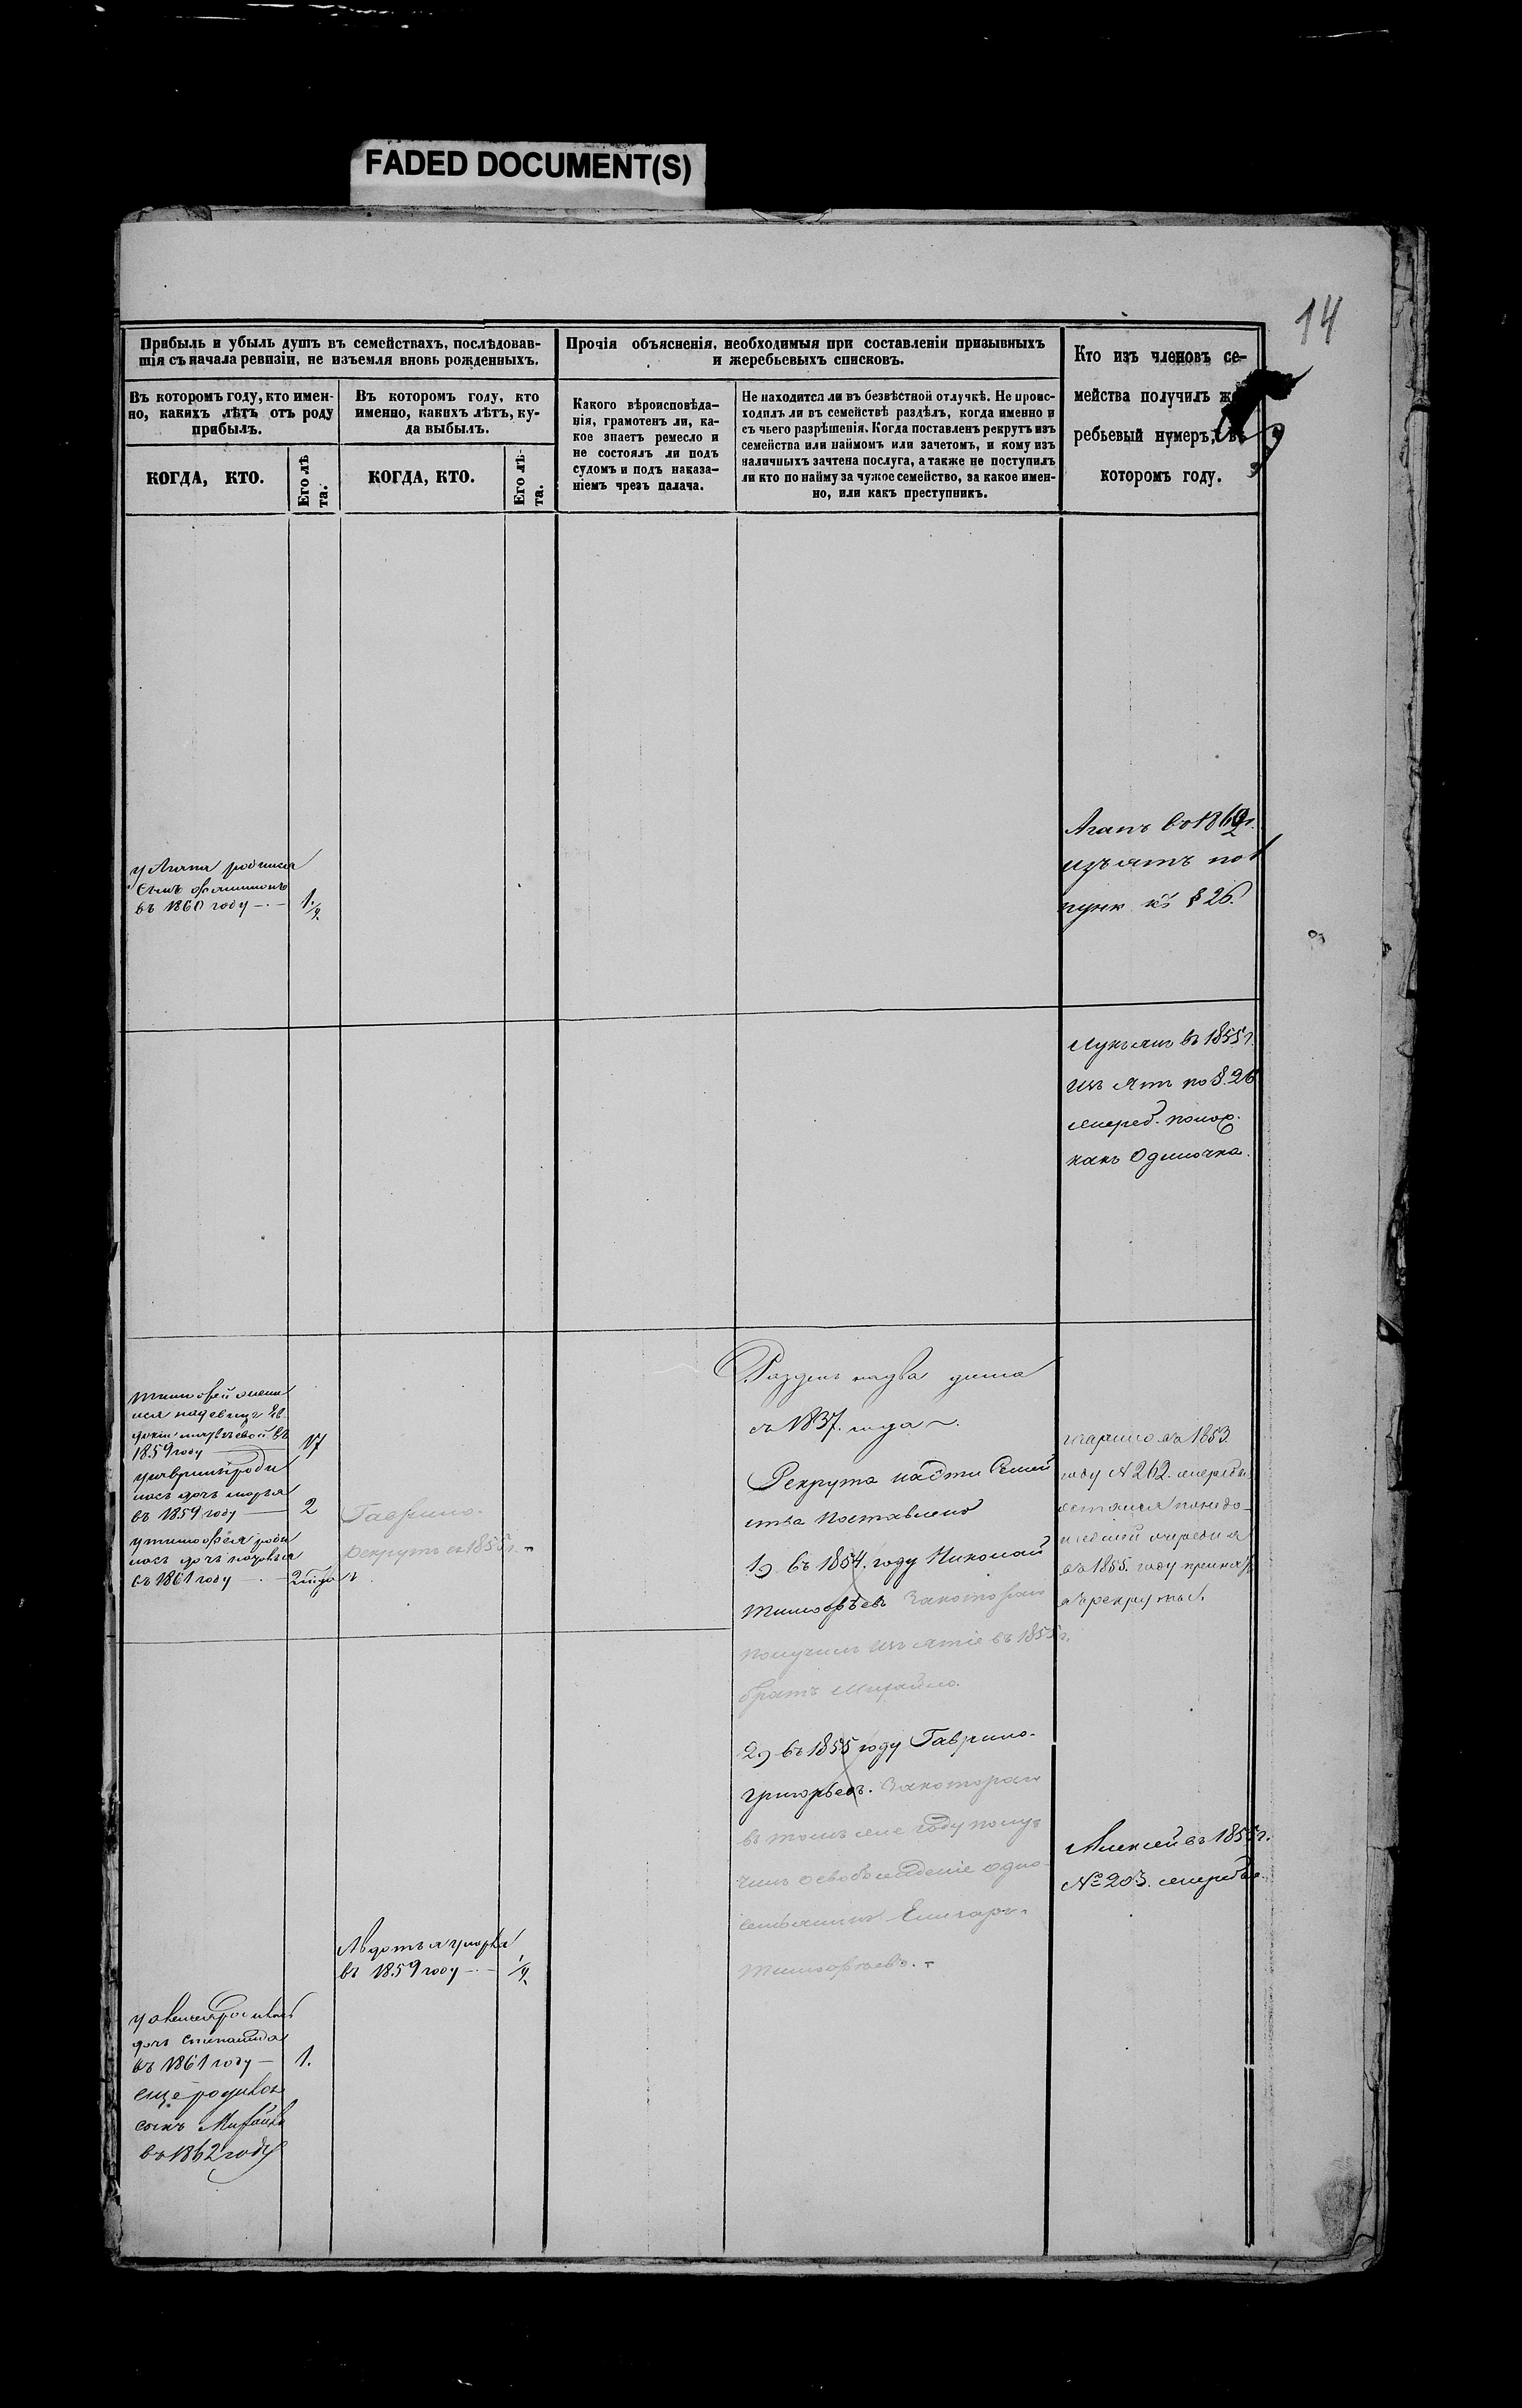 FADED DOCUMENT(S)
14
Прибыль и убыль душъ въ семействахъ, послѣдовав-
шія съ начала ревизіи, не изъемля вновь рожденныхъ.
Прочія объясненія, необходимыя при составленіи призывныхъ
и жеребьевыхъ списковъ.
Кто изъ членовъ се-
мейства получилъ же-
ребьевый нумеръ, въ
которомъ году.
Въ которомъ году, кто имен-
но, какихъ лѣтъ отъ роду
прибылъ.
Въ которомъ году, кто
именно, какихъ лѣтъ, ку-
да выбылъ.
Какого вѣроисповѣда-
нія, грамотенъ ли, ка-
кое знаетъ ремесло и
не состоялъ ли подъ
судомъ и подъ наказа-
ніемъ чрезъ палача.
Не находится ли въ безвѣстной отлучкѣ. Не проис-
ходилъ ли въ семействѣ раздѣлъ, когда именно и
съ чьего разрѣшенія. Когда поставленъ рекрутъ изъ
семейства или наймомъ или зачетомъ, и кому изъ
наличныхъ зачтена послуга, а также не поступилъ
ли кто по найму за чужое семейство, за какое имен-
но, или какъ преступникъ.
КОГДА, КТО.
Его лѣ
та.
КОГДА, КТО.
Его лѣ-
та.
Агапъ во 1862 г.
изъятъ по 1
пунк § 26.
у Агапа родился
сынъ
въ 1860 году — 1 1/2
Лукьянъ въ 1855 г.
изъятъ по § 26
жереб. полож.
какъ Одиночка.
Тимофей женил
ся на девице Ев
докіи въ
1859 году — 17
у Гаврилы роди
лась дочь марья
въ 1859 году — 2
у тимофея роди
лась дочь
въ 1861 году 2
Гаврило
рекрутъ въ 1855 г.
Раздѣлъ на два дыма
съ 1837 года
Рекрута Семей
ства поставлено
1) въ 1854 году Николай
Тимофѣевъ за которого
получилъ изъятіе въ 1855 г.
братъ Михайло.
2) въ 1855 году Гаврило
григорьевъ. За которого
въ томъ же году полу
чилъ освобожденіе одно
семьянинъ
Тимофѣевъ.
Гаврило въ 1853
году № 262. жеребья
остался по недо-
шедшей очереди а
въ 1855 году принятъ
въ рекруты.
Алексей въ 1855 г.
№ 203. жеребья
Авдотья умерла
въ 1859 году — 1/2
у Алексея родилась
дочь Степанида
въ 1861 году — 1.
еще родился
сынъ Михайла
въ 1862 году